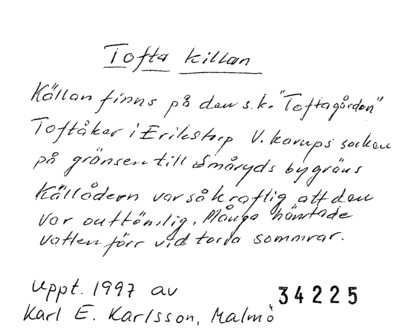 Tofta källan
Källan finns på den s.k. "Toftagården"
Toftåker i Erikstorp V. Karups socken
på gränsen till Småryds bygräns
Källådern var så kraftig att den
var outtömlig. Många hämtade
vatten förr vid torra sommrar.
Uppt. 1997 av
Karl E. Karlsson, Malmö
34225